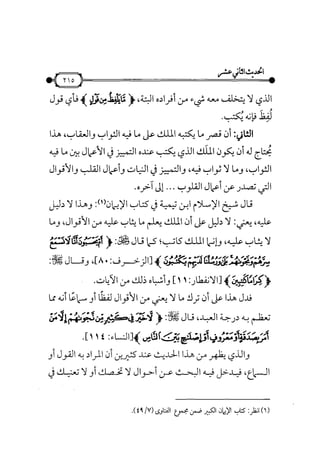 الحديث الثاني عشر
٢١٥
الذي لا يتخلف معه شيء من أفراده البتة، ﴿ مَّا يَلْفِظُ مِن قَوْلٍ ﴾ فأي قول
لُفِظَ فإنه يُكتب.
الثاني: أن قصر ما يكتبه الملك على ما فيه الثواب والعقاب، هذا
يُحتاج له أن يكون الملَك الذي يكتب عنده التمييز في الأعمال بين ما فيه
الثواب، وما لا ثواب فيه، والتمييز في النيات وأعمال القلب والأقوال
التي تصدر عن أعمال القلوب ... إلى آخره.
قال شيخ الإسلام ابن تيمية في كتاب الإيمان(١): وهذا لا دليل
عليه، يعني: لا دليل على أن الملك يعلم ما يثاب عليه من الأقوال، وما
لا يثاب عليه، وإنما الملك كاتب؛ كما قال ﷻ: ﴿ أَمْ يَحْسَبُونَ أَنَّا لَا نَسْمَعُ
سِرَّهُمْ وَنَجْوَاهُم بَلَىٰ وَرُسُلُنَا لَدَيْهِمْ يَكْتُبُونَ ﴾ [الزخرف: ٨٠]، وقال ﷻ:
﴿ كِرَامًا كَاتِبِينَ ﴾ [الانفطار: ١١] وأشباه ذلك من الآيات.
فدل هذا على أن ترك ما لا يعني من الأقوال لفظًا أو سماعًا أنه مما
تعظم به درجة العبد، قال ﷻ: ﴿ لَّا خَيْرَ فِي كَثِيرٍ مِّن نَّجْوَاهُمْ إِلَّا مَنْ
أَمَرَ بِصَدَقَةٍ أَوْ مَعْرُوفٍ أَوْ إِصْلَاحٍ بَيْنَ النَّاسِ ﴾ [النساء: ١١٤].
والذي يظهر من هذا الحديث عند كثيرين أن المراد به القول أو
السماع، فيدخل فيه البحث عن أحوال لا تخصك أو لا تعنيك في
(١) انظر: كتاب الإيمان الكبير ضمن مجموع الفتاوى (٧/ ٤٩).